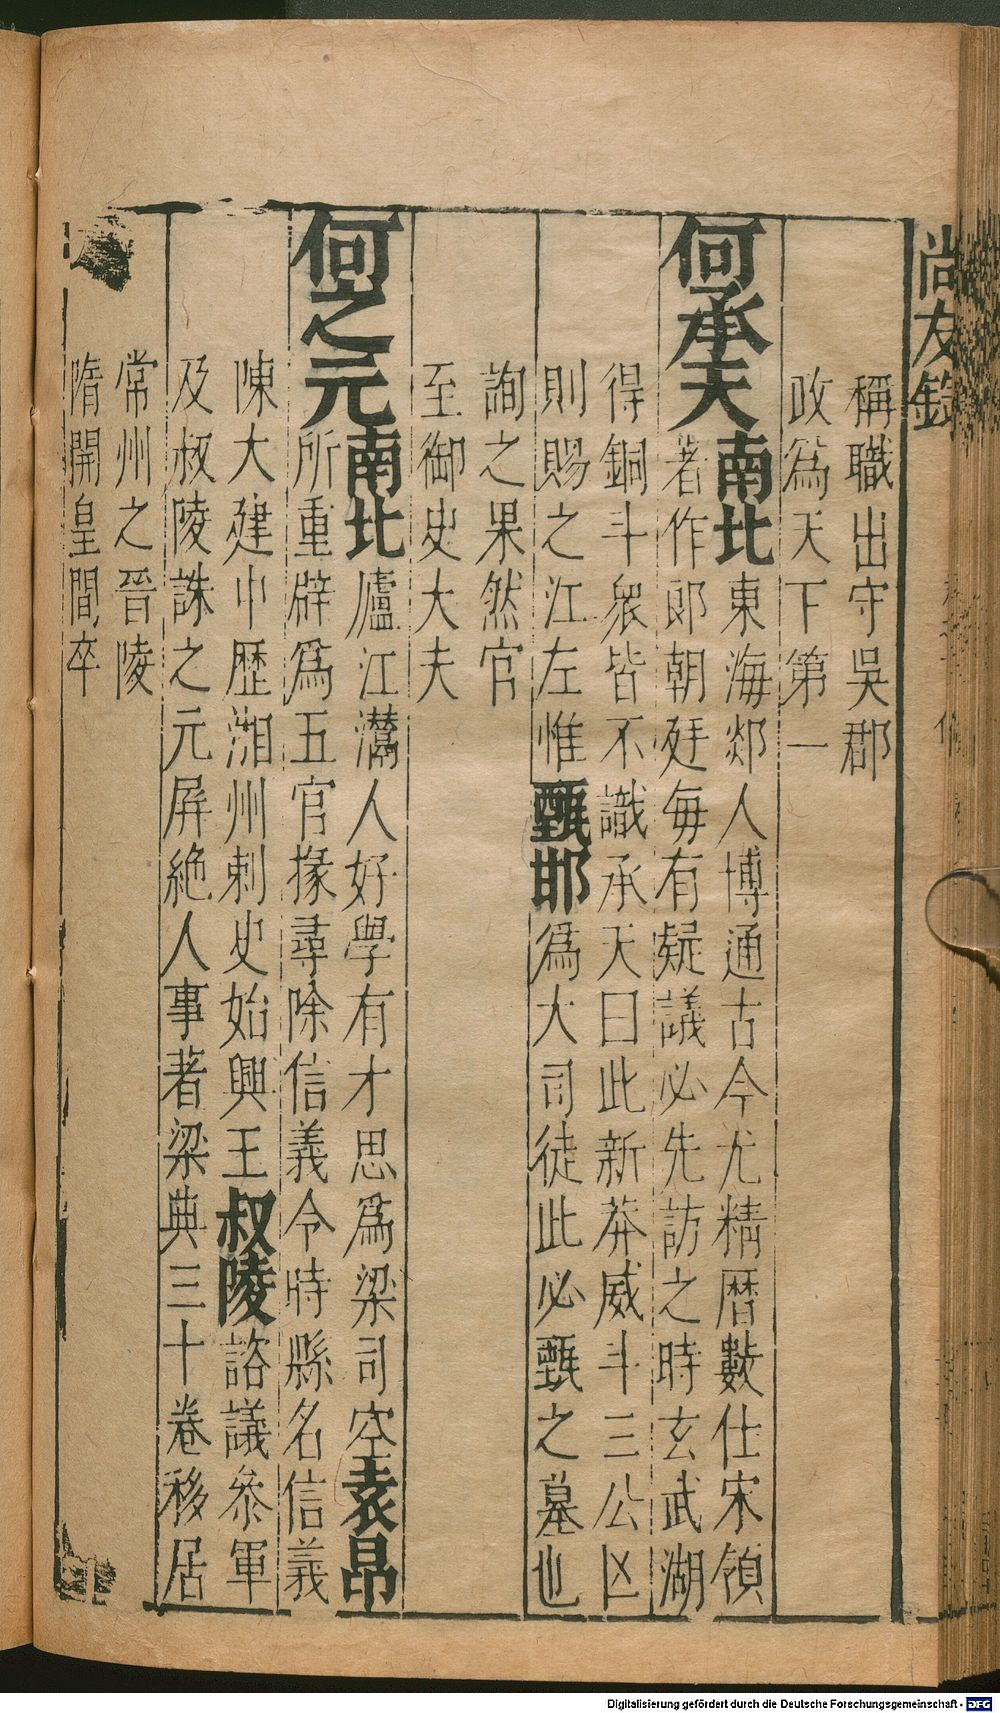 尚友錄
稱職出守吳郡
政爲天下第一
何承天南北東海郯人博通古今尤精曆數仕宋領
著作郎朝廷每有疑議必先訪之時玄武湖
得銅斗衆皆不識承天曰此新莽威斗三公凶
則賜之江左惟甄邯爲大司徒此必甄之墓也
詢之果然官
至御史大夫
何之元南北廬江灊人好學有才思爲梁司空袁昂
所重辟爲五官掾尋除信義令時縣名信義
陳大建中歷湘州刺史始興王叔陵諮議參軍
及叔陵誅之元屏絶人事著梁典三十卷移居
常州之晉陵
隋開皇間卒
Digitalisierung gefördert durch die Deutsche Forschungsgemeinschaft - DFG